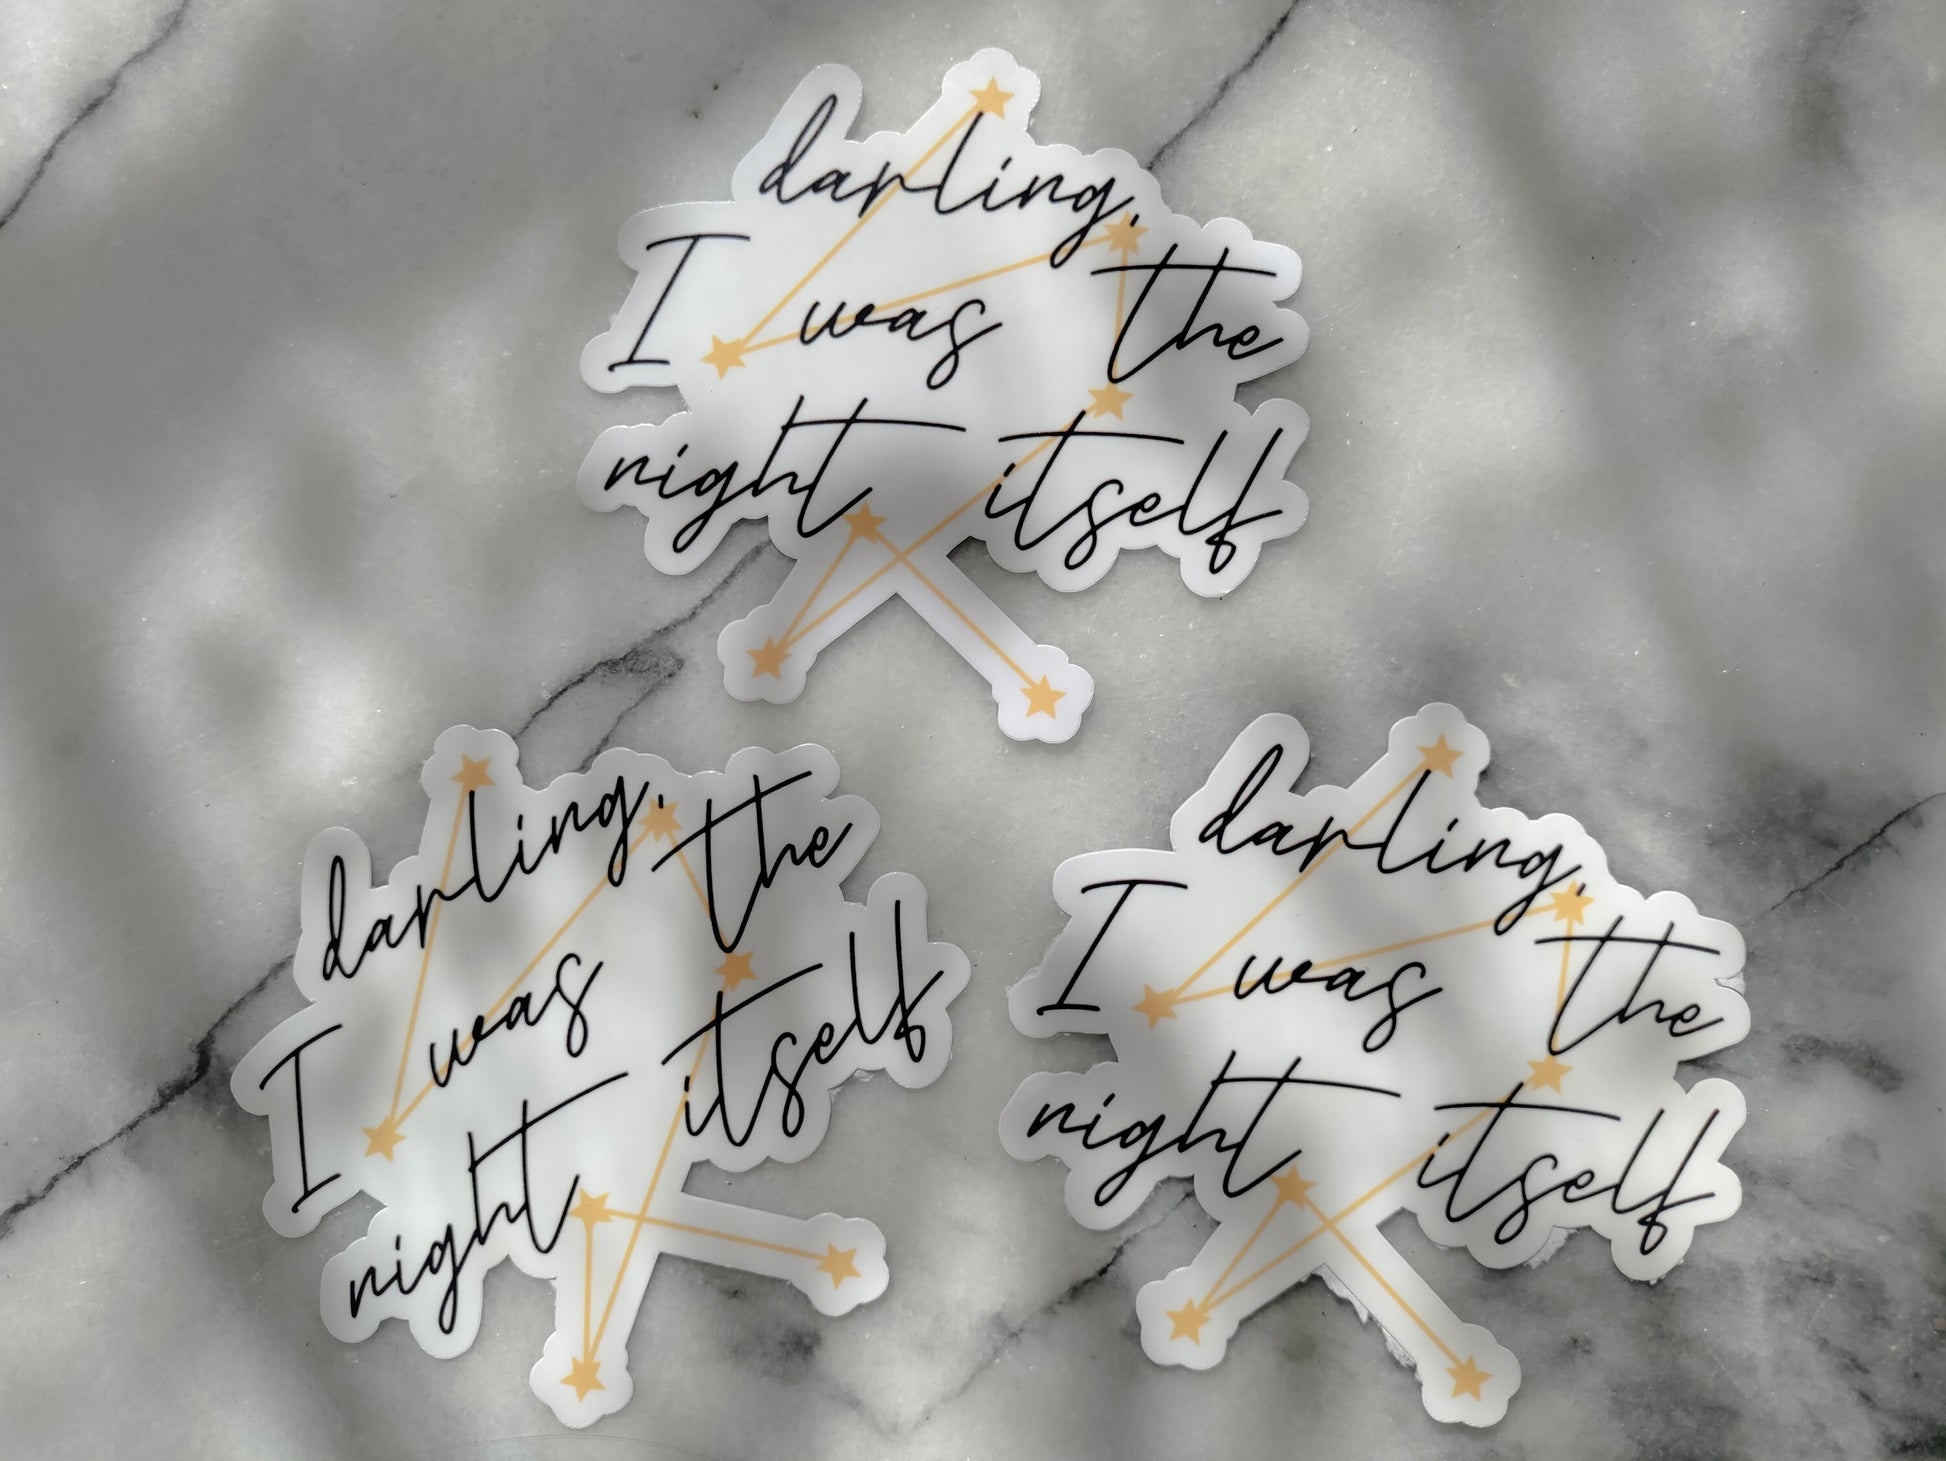 darling,
I was the
night itself
darling, the
I was
night itself
darling,
I was the
night itself